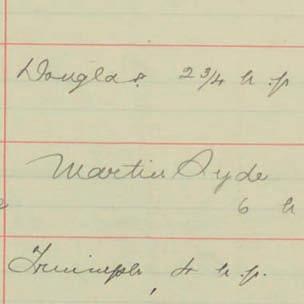 Douglas. 2 3/4 h.p
Martin Syde
6 h
Triumph, 4 h.p.